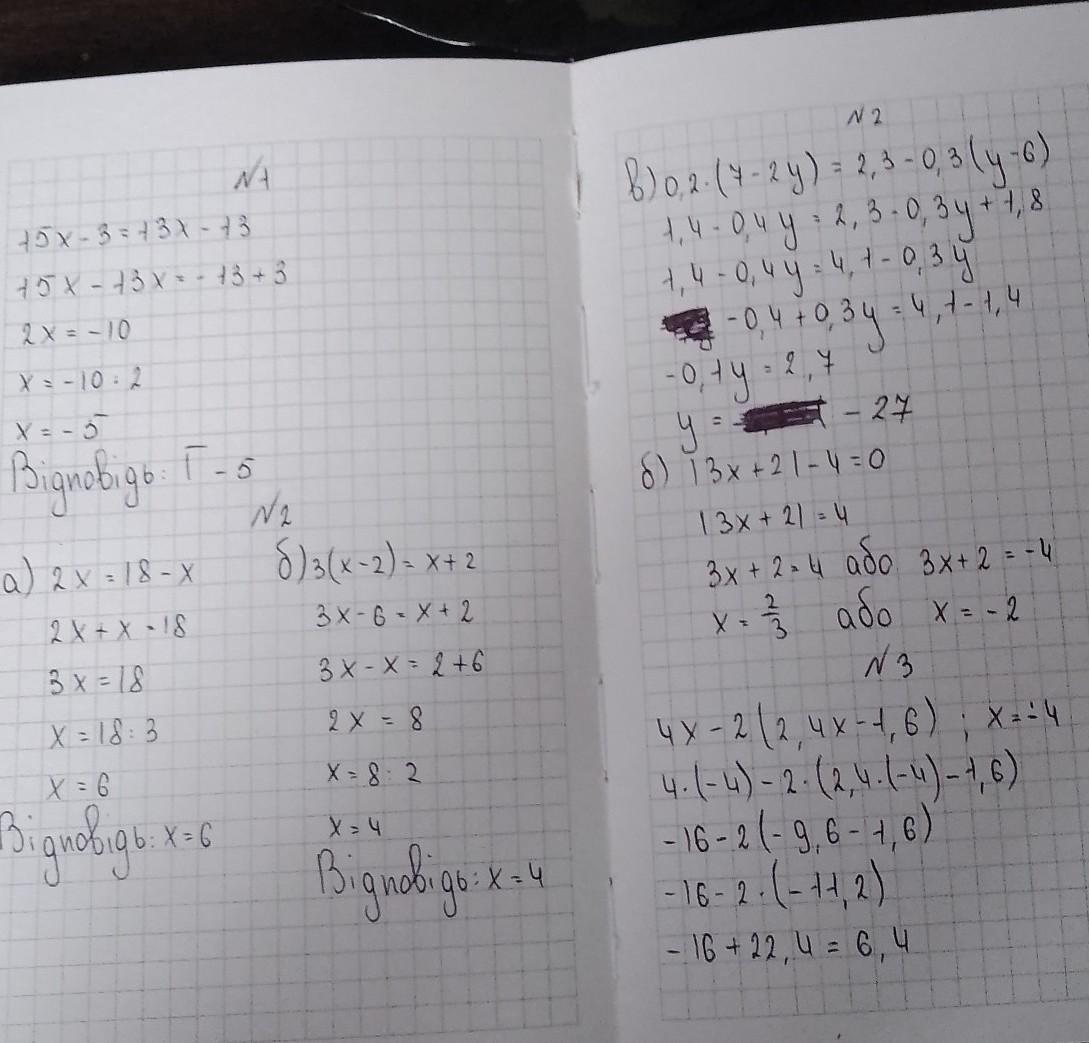 N1
15x-3=13x-13
15x-13x=-13+3
2x=-10
x=-10:2
x=-5
Відповідь: Г -5
N2
а) 2x=18-x
2x+x=18
3x=18
x=18:3
x=6
Відповідь: x=6
б) 3(x-2)=x+2
3x-6=x+2
3x-x=2+6
2x=8
x=8:2
x=4
Відповідь: x=4
N2
в) 0,2·(7-2y)=2,3-0,3(y-6)
1,4-0,4y=2,3-0,3y+1,8
1,4-0,4y=4,1-0,3y
-0,4+0,3y=4,1-1,4
-0,1y=2,7
y= -27
б) |3x+2|-4=0
|3x+2|=4
3x+2=4 або 3x+2=-4
x=2/3 або x=-2
N3
4x-2(2,4x-1,6); x=-4
4·(-4)-2·(2,4·(-4)-1,6)
-16-2(-9,6-1,6)
-16-2·(-11,2)
-16+22,4=6,4